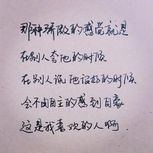 那种骄傲的感觉就是
在别人夸他的时候
在别人说他很好的时候
会不由自主的感到自豪
这是我喜欢的人啊.